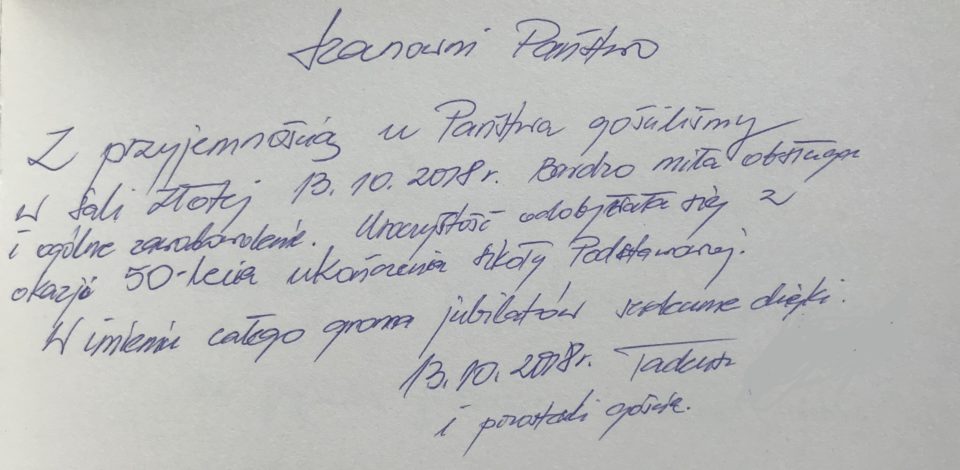 Szanowni Państwo
Z przyjemnością u Państwa gościliśmy
w Sali Złotej 13.10.2018r. Bardzo miła obsługa
i ogólne zadowolenie. Uroczystość odobyłała się z
okazji 50-lecia ukończenia szkoły Podstawowej.
W imieniu całego grona jubilatów serdeczne dzięki.
13.10.2018r. Tadeusz
i pozostali goście.